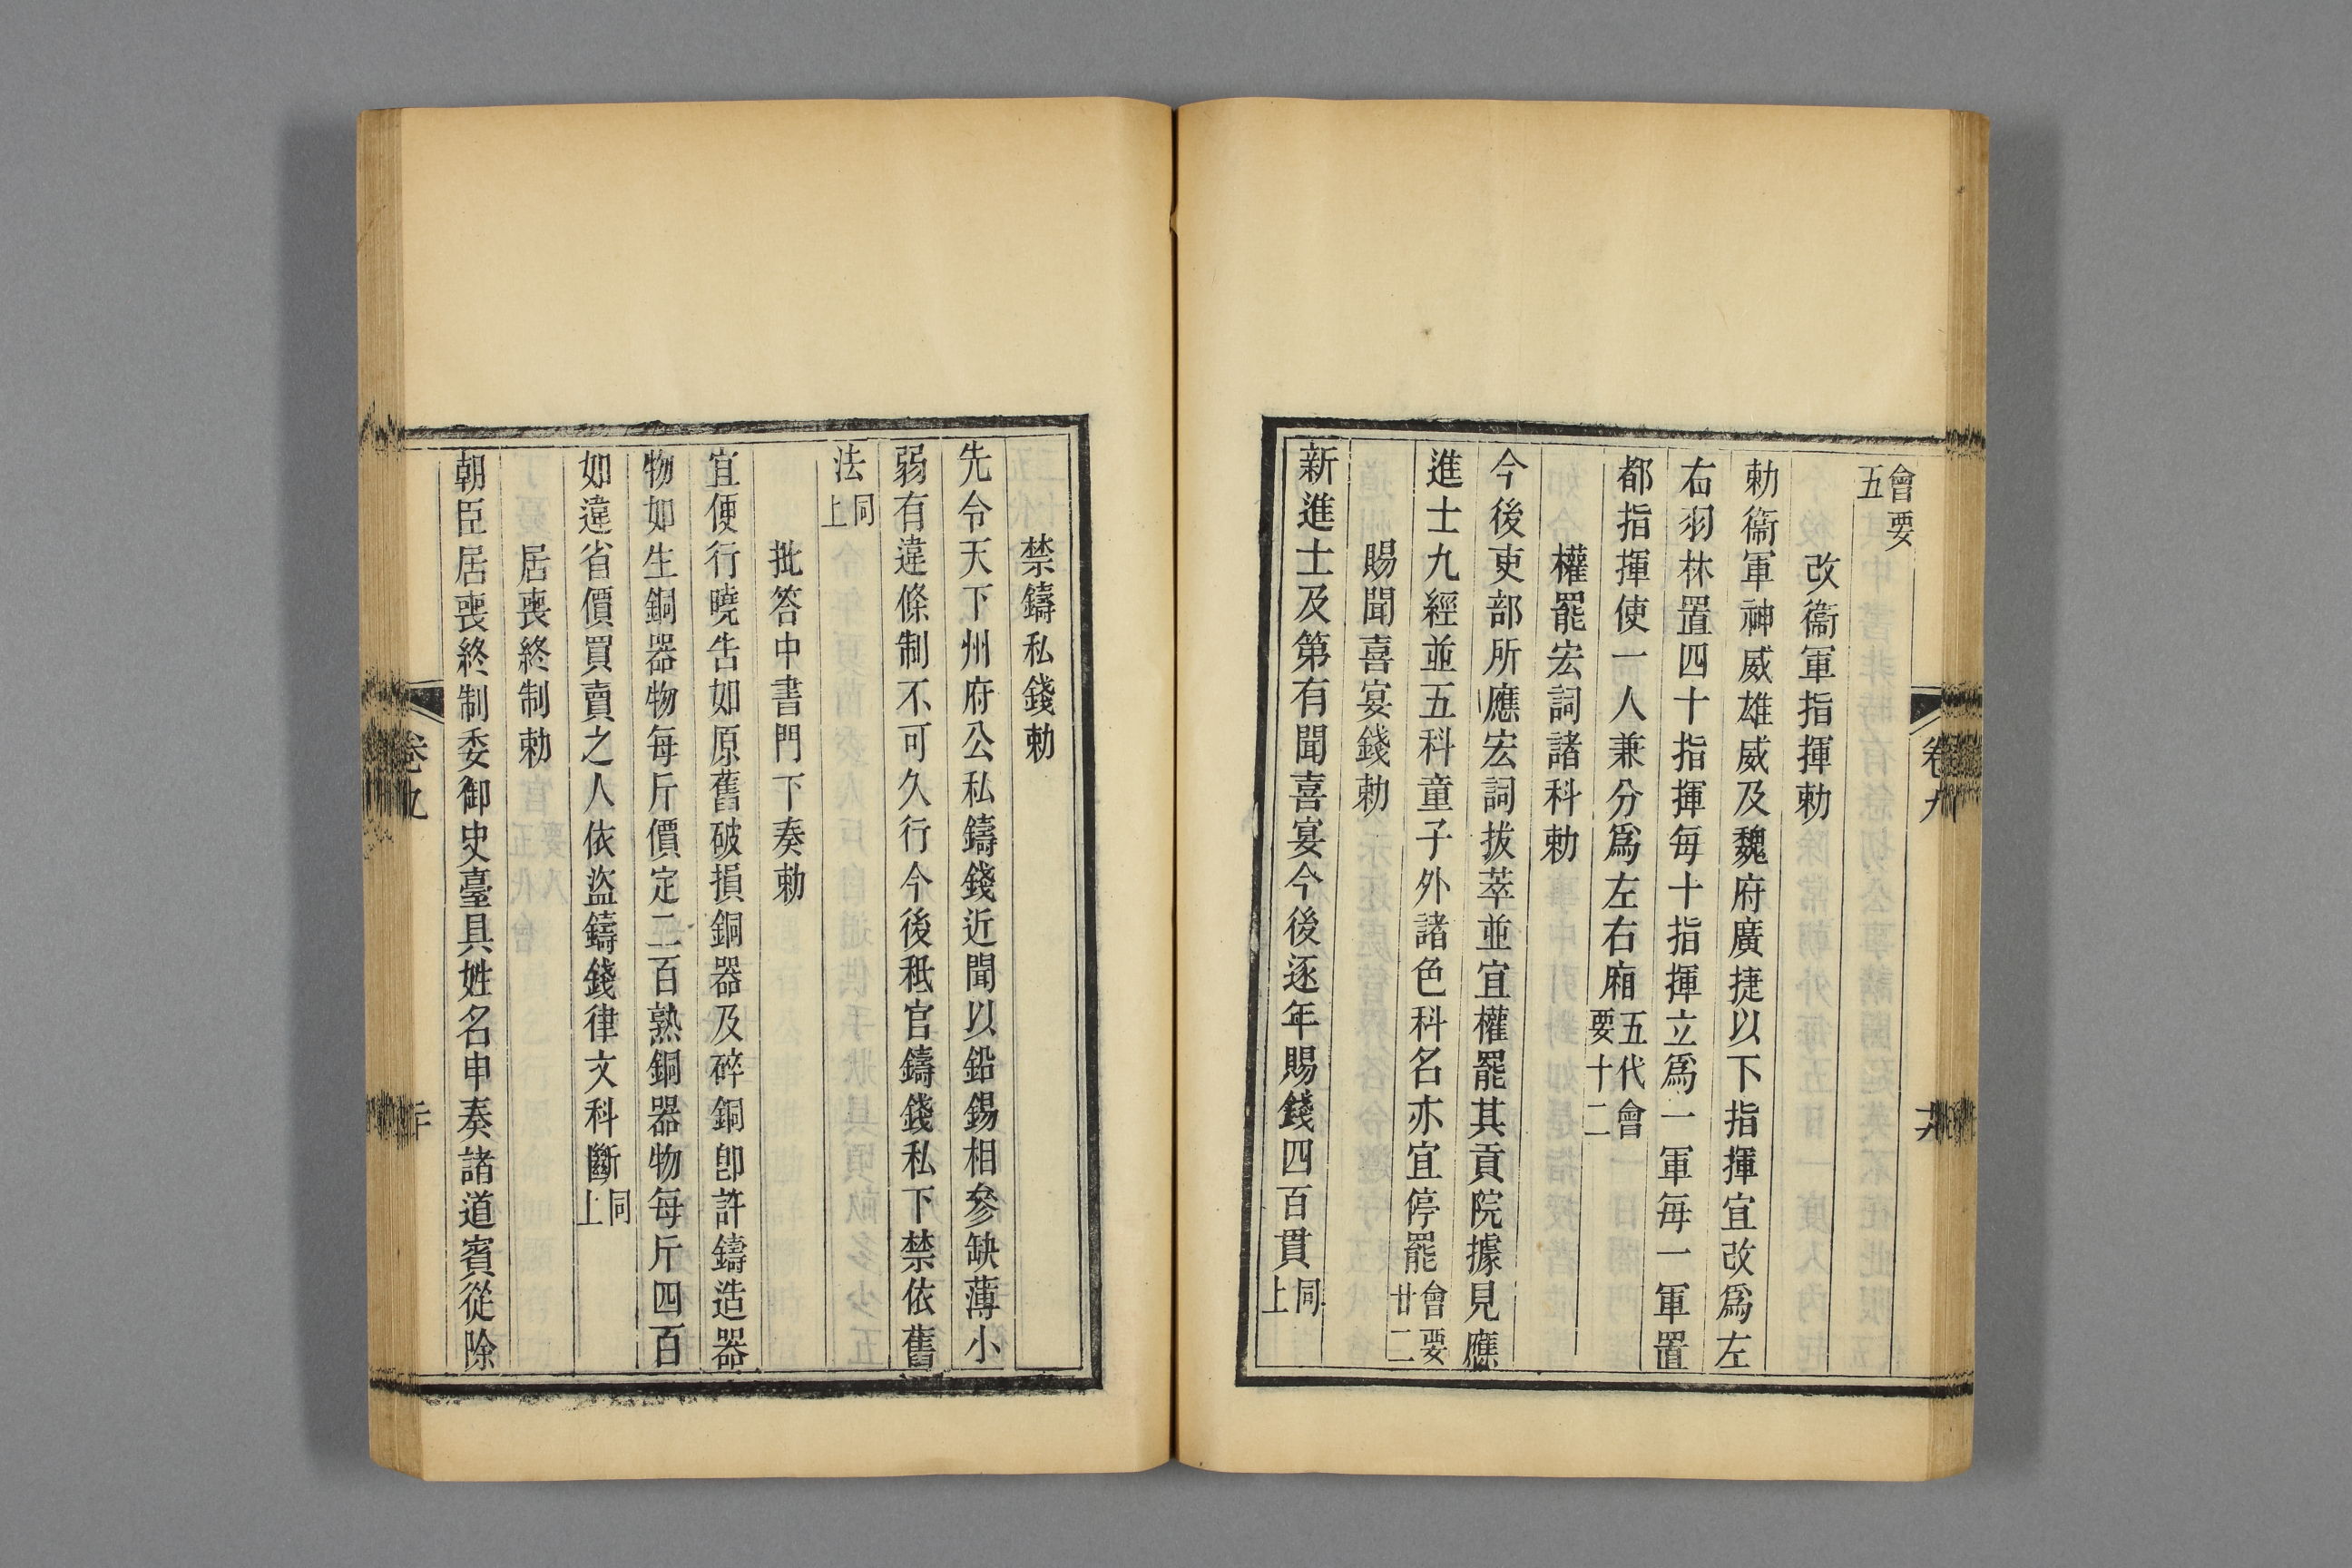 會要
五
改衞軍指揮勅
勅衞軍神威雄威及魏府廣捷以下指揮宜改爲左
右羽林置四十指揮每十指揮立爲一軍每一軍置
都指揮使一人兼分爲左右廂五代會
要十二
權罷宏詞諸科勅
今後吏部所應宏詞拔萃並宜權罷其貢院據見應
進士九經並五科童子外諸色科名亦宜停罷會要
廿二
賜聞喜宴錢勅
新進士及第有聞喜宴今後逐年賜錢四百貫同
上
卷九
禁鑄私錢勅
先令天下州府公私鑄錢近聞以鉛錫相參缺薄小
弱有違條制不可久行今後秪官鑄錢私下禁依舊
法同
上
批答中書門下奏勅
宜便行曉告如原舊破損銅器及碎銅卽許鑄造器
物如生銅器物每斤價定二百熟銅器物每斤四百
如違省價買賣之人依盜鑄錢律文科斷同
上
居喪終制勅
朝臣居喪終制委御史臺具姓名申奏諸道賓從除
卷九